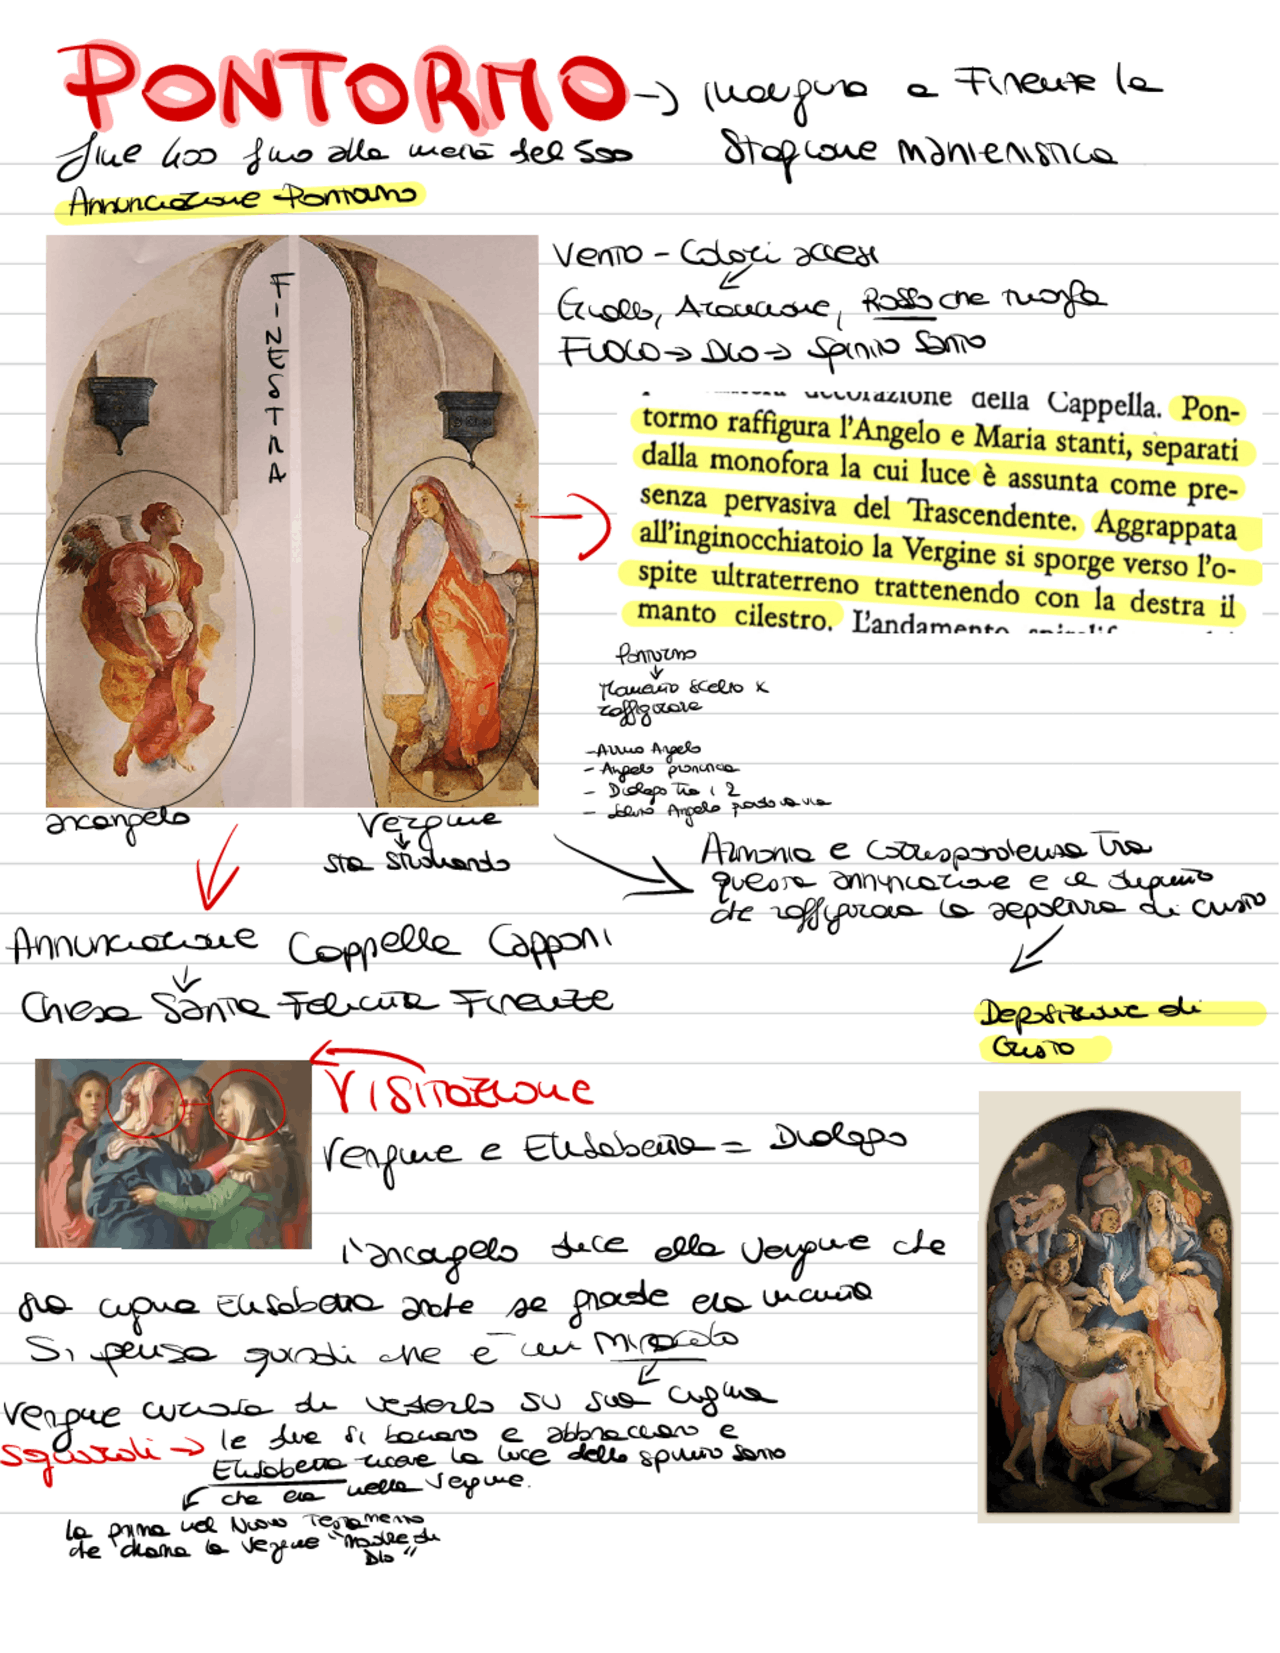 PONTORMO → inaugura a Firenze la
fine 400 fino alla metà del 500 stagione manieristica
Annunciazione Pontormo
FINESTRA
Vento - Colori accesi
Giallo, Arancione, Rosso che
FUOCO → Dio → Spirito Santo
decorazione della Cappella. Pon-
tormo raffigura l'Angelo e Maria stanti, separati
dalla monofora la cui luce è assunta come pre-
senza pervasiva del Trascendente. Aggrappata
all'inginocchiatoio la Vergine si sporge verso l'o-
spite ultraterreno trattenendo con la destra il
manto cilestro. L'andamento
Pontormo
↓
Momento scelto x
raffigurare
- Arrivo Angelo
- Angelo pronuncia
- Dialogo tra i 2
- Angelo
arcangelo
Vergine
↓
sta
Armonia e corrispondenza tra
questa annunciazione e il dipinto
che raffigura la di Cristo
Annunciazione Cappella Capponi
↓
Chiesa Santa Felicita Firenze
Deposizione di
Cristo
VISITAZIONE
Vergine e Elisabetta = Dialogo
l'arcangelo dice alla Vergine che
sua cugina Elisabetta anche se grande era incinta
Si pensa quindi che è un Miracolo
↓
Vergine curiosa di vederlo su sua cugina
sguardi → le due si baciano e abbracciano e
Elisabetta riceve la luce dello spirito santo
che era nella Vergine.
la prima nel Nuovo Testamento
che chiama la Vergine "Madre di
Dio"